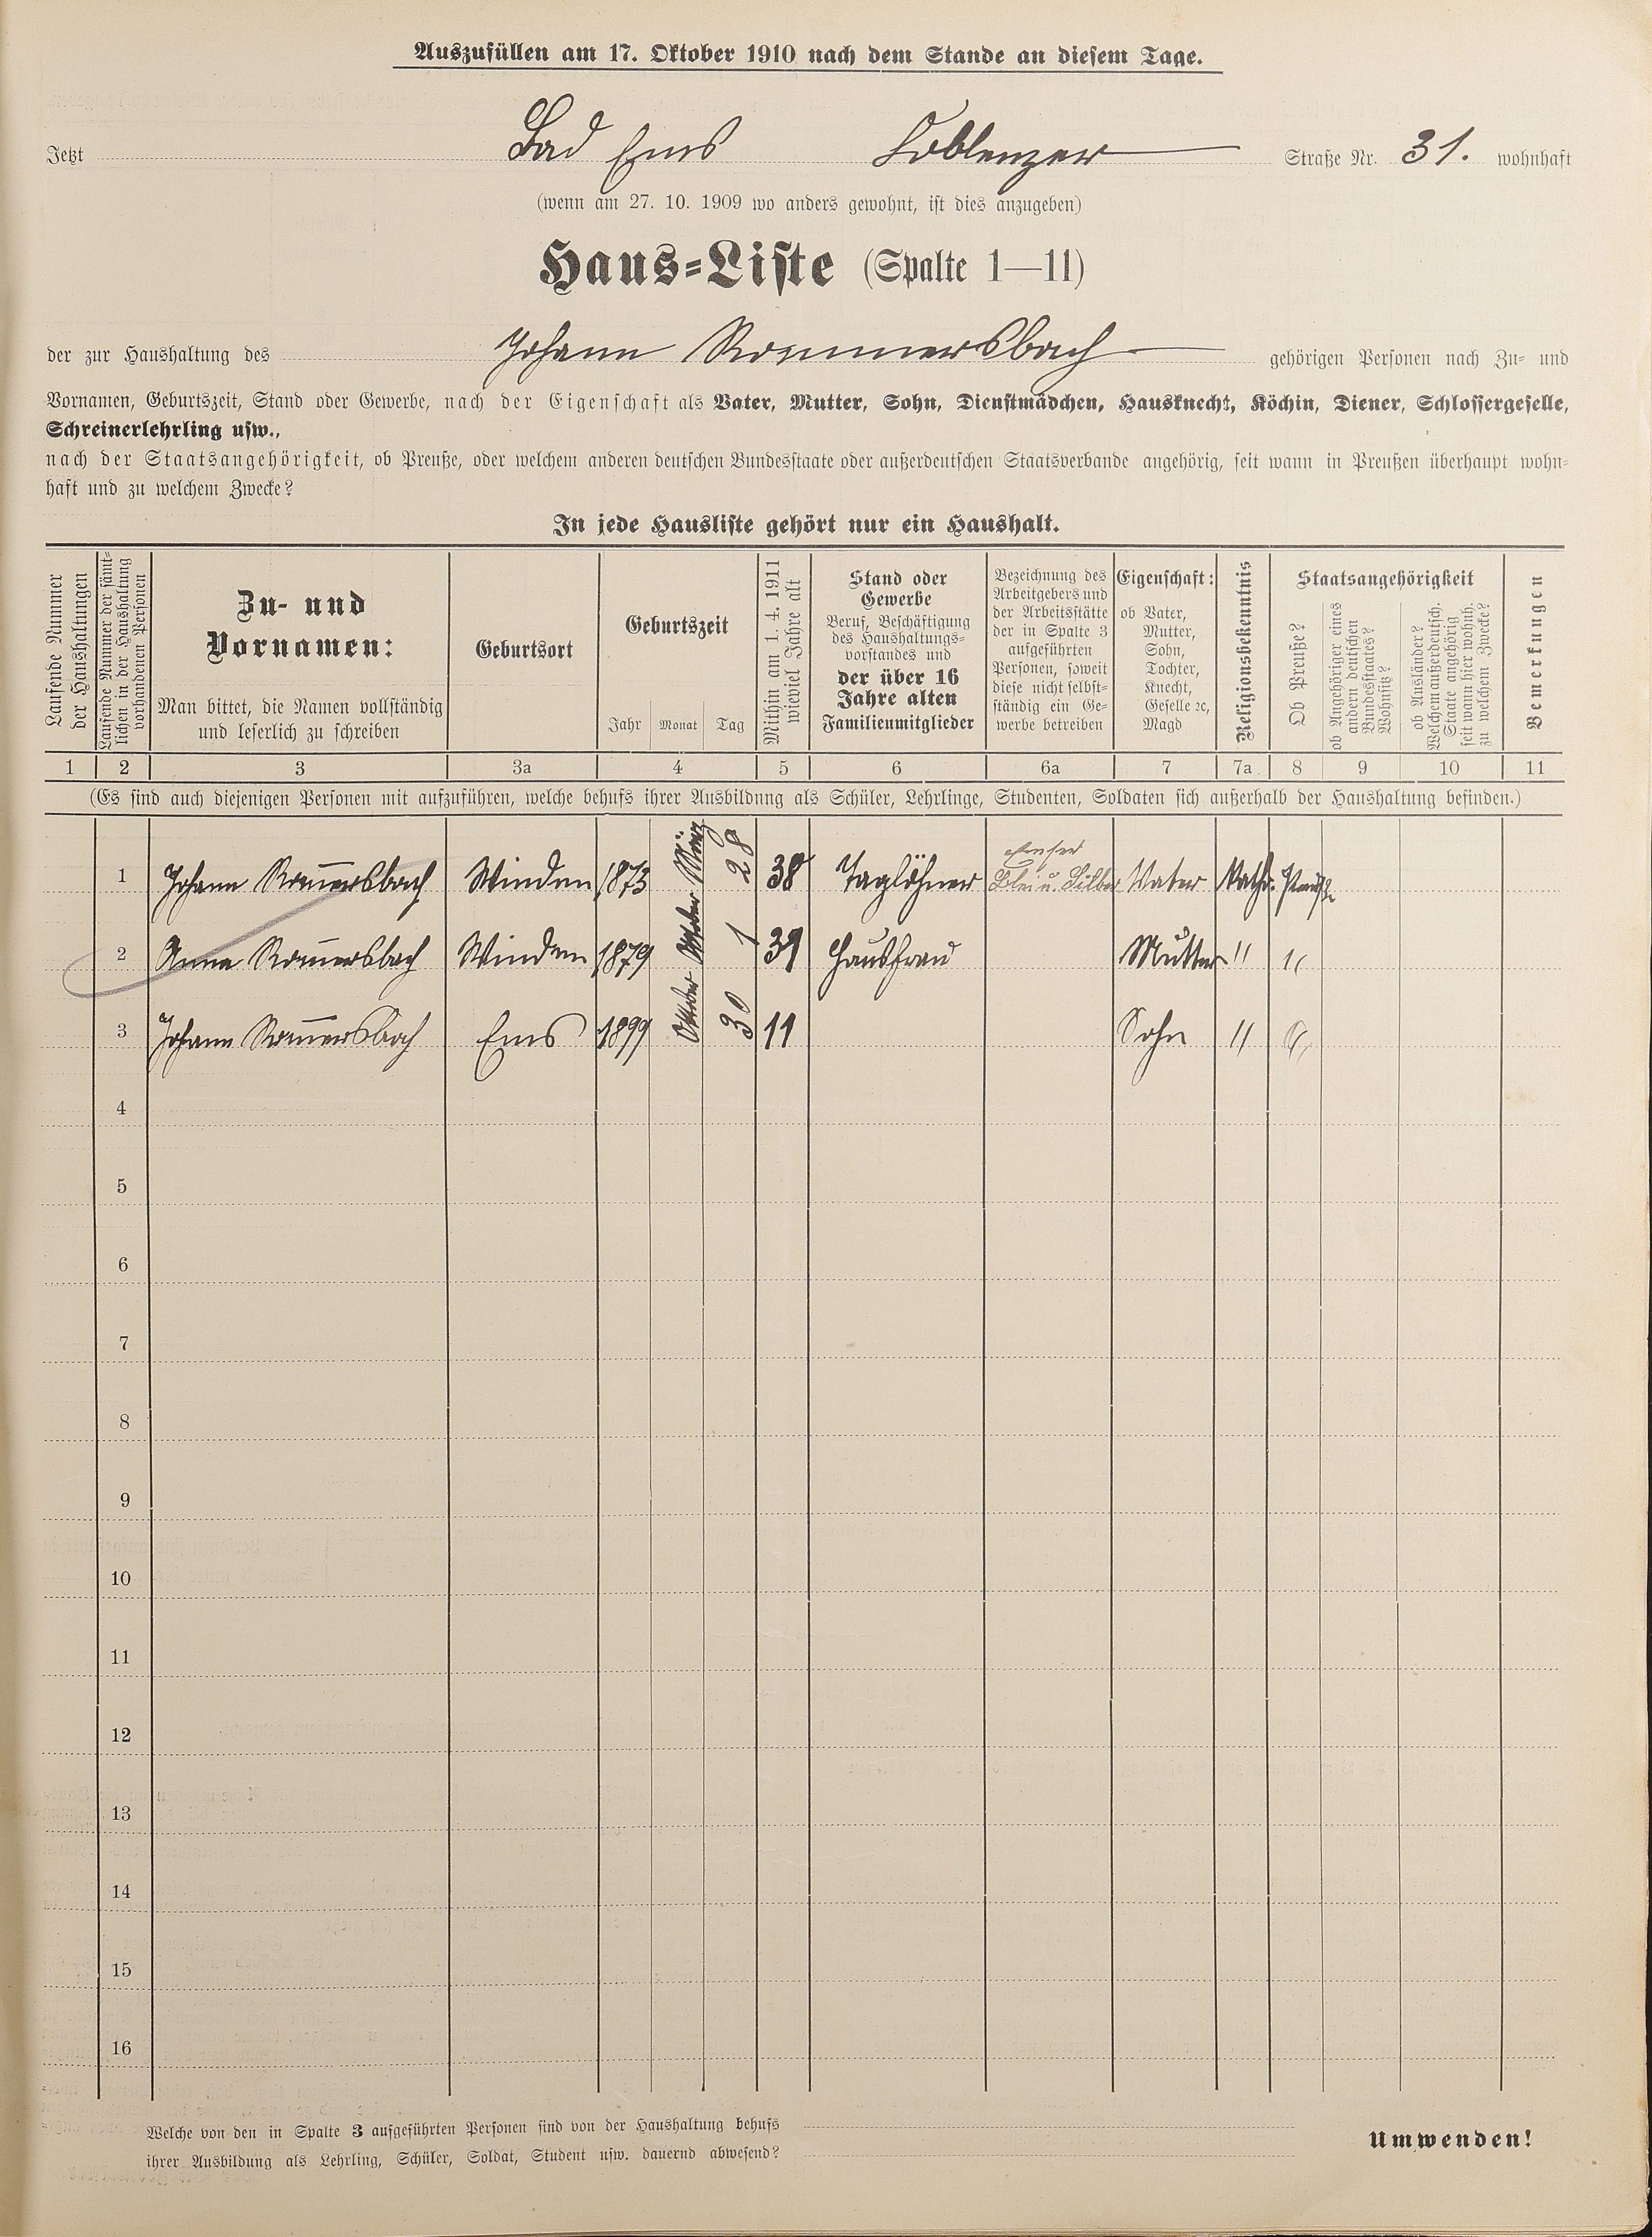 Auszufüllen am 17. Oktober 1910 nach dem Stande an diesem Tage.
Jetzt Bad Ems Coblenzer Straße Nr. 31. wohnhaft
(wenn am 27. 10. 1909 wo anders gewohnt, ist dies anzugeben)
Haus-Liste (Spalte 1—11)
der zur Haushaltung des Johann Rommersbach gehörigen Personen nach Zu- und
Vornamen, Geburtszeit, Stand oder Gewerbe, nach der Eigenschaft als Vater, Mutter, Sohn, Dienstmädchen, Hausknecht, Köchin, Diener, Schlossergeselle,
Schreinerlehrling usw.,
nach der Staatsangehörigkeit, ob Preuße, oder welchem anderen deutschen Bundesstaate oder außerdeutschen Staatsverbande angehörig, seit wann in Preußen überhaupt wohn-
haft und zu welchem Zwecke?
In jede Hausliste gehört nur ein Haushalt.
Laufende Nummer
der Haushaltungen
Laufende Nummer der sämt-
lichen in der Haushaltung
vorhandenen Personen
Zu- und
Vornamen:
Man bittet, die Namen vollständig
und leserlich zu schreiben
Geburtsort
Geburtszeit
Jahr Monat Tag
Mithin am 1. 4. 1911
wieviel Jahre alt
Stand oder
Gewerbe
Beruf, Beschäftigung
des Haushaltungs-
vorstandes und
der über 16
Jahre alten
Familienmitglieder
Bezeichnung des
Arbeitgebers und
der Arbeitsstätte
der in Spalte 3
aufgeführten
Personen, soweit
diese nicht selbst-
ständig ein Ge-
werbe betreiben
Eigenschaft:
ob Vater,
Mutter,
Sohn,
Tochter,
Knecht,
Geselle ꝛc,
Magd
Religionsbekenntnis
Staatsangehörigkeit
Ob Preuße?
ob Angehöriger eines
andern deutschen
Bundesstaates?
Wohnsitz?
ob Ausländer?
Welchem außerdeutsch.
Staate angehörig
seit wann hier wohnh.
zu welchem Zwecke?
Bemerkungen
1 2 3 3a 4 5 6 6a 7 7a 8 9 10 11
(Es sind auch diejenigen Personen mit aufzuführen, welche behufs ihrer Ausbildung als Schüler, Lehrlinge, Studenten, Soldaten sich außerhalb der Haushaltung befinden.)
1 Johann Rom̅ersbach Winden 1873 März 28 38 Taglöhner Emser Blei u. Silber Vater Kath. Preuße
2 Anna Rom̅ersbach Winden 1879 Oktober 1 31 Hausfrau Mutter " "
3 Johann Rom̅ersbach Ems 1899 Oktober 30 11 Sohn " "
4
5
6
7
8
9
10
11
12
13
14
15
16
Welche von den in Spalte 3 aufgeführten Personen sind von der Haushaltung behufs
ihrer Ausbildung als Lehrling, Schüler, Soldat, Student usw. dauernd abwesend?
Umwenden!